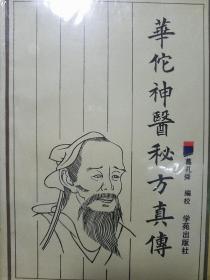 華佗神醫秘方真傳
葛孔舜 編校
学苑出版社